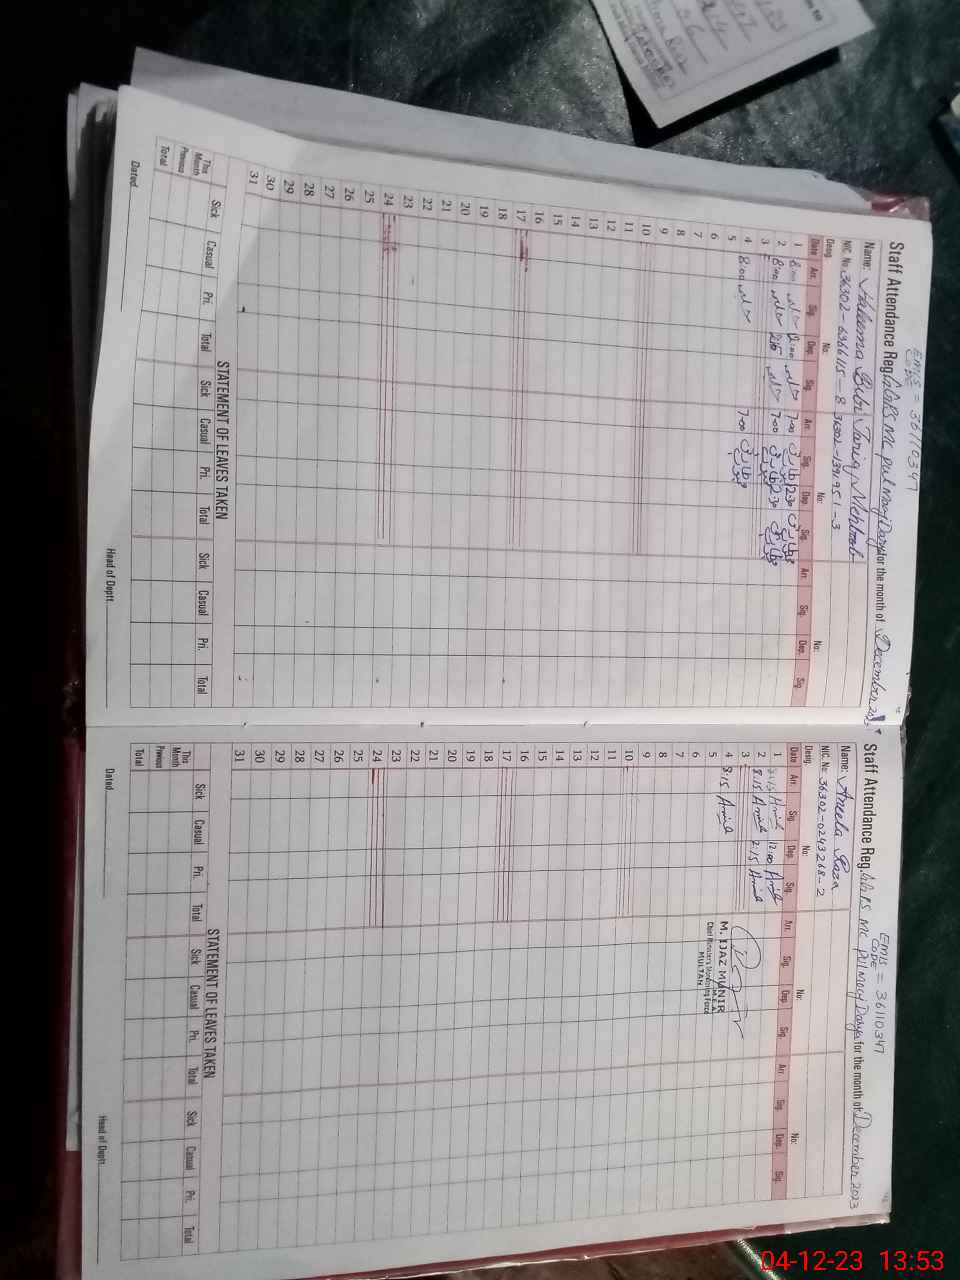 EMIS CODE = 36110347
Staff Attendance Reg. GGPS MC Pul Mocy Darya for the month of December 2023
Name: Haleema Bibi Tariq Mehboob
NIC. No. 36302-6366115-8 36302-1391951-3
Desig. No: No: No:
Date Arr. Sig. Dep. Sig. Arr. Sig. Dep. Sig. Arr. Sig. Dep. Sig.
1 8:00 12:00 7:00 12:30
2 8:00 2:15 7:00 2:30
3
4 8:00 7:00
5
6
7
8
9
10
11
12
13
14
15
16
17
18
19
20
21
22
23
24
25
26
27
28
29
30
31
STATEMENT OF LEAVES TAKEN
Sick Casual Pri. Total Sick Casual Pri. Total Sick Casual Pri. Total
This Month
Previous
Total
Dated Head of Deptt.
EMIS CODE = 36110347
Staff Attendance Reg. GGPS MC Pul Mocy Darya for the month of December 2023
Name: Aneela Raza
NIC. No. 36302-0243268-2
Desig. No: No: No:
Date Arr. Sig. Dep. Sig. Arr. Sig. Dep. Sig. Arr. Sig. Dep. Sig.
1 8:15 12:00
2 8:15 2:15
3
4 8:15
5
6
7
8
9
10
11
12
13
14
15
16
17
18
19
20
21
22
23
24
25
26
27
28
29
30
31
M. IJAZ MUNIR
M.E.A
Chief Minister's Monitoring Force
MULTAN
STATEMENT OF LEAVES TAKEN
Sick Casual Pri. Total Sick Casual Pri. Total Sick Casual Pri. Total
This Month
Previous
Total
Dated Head of Deptt.
04-12-23 13:53